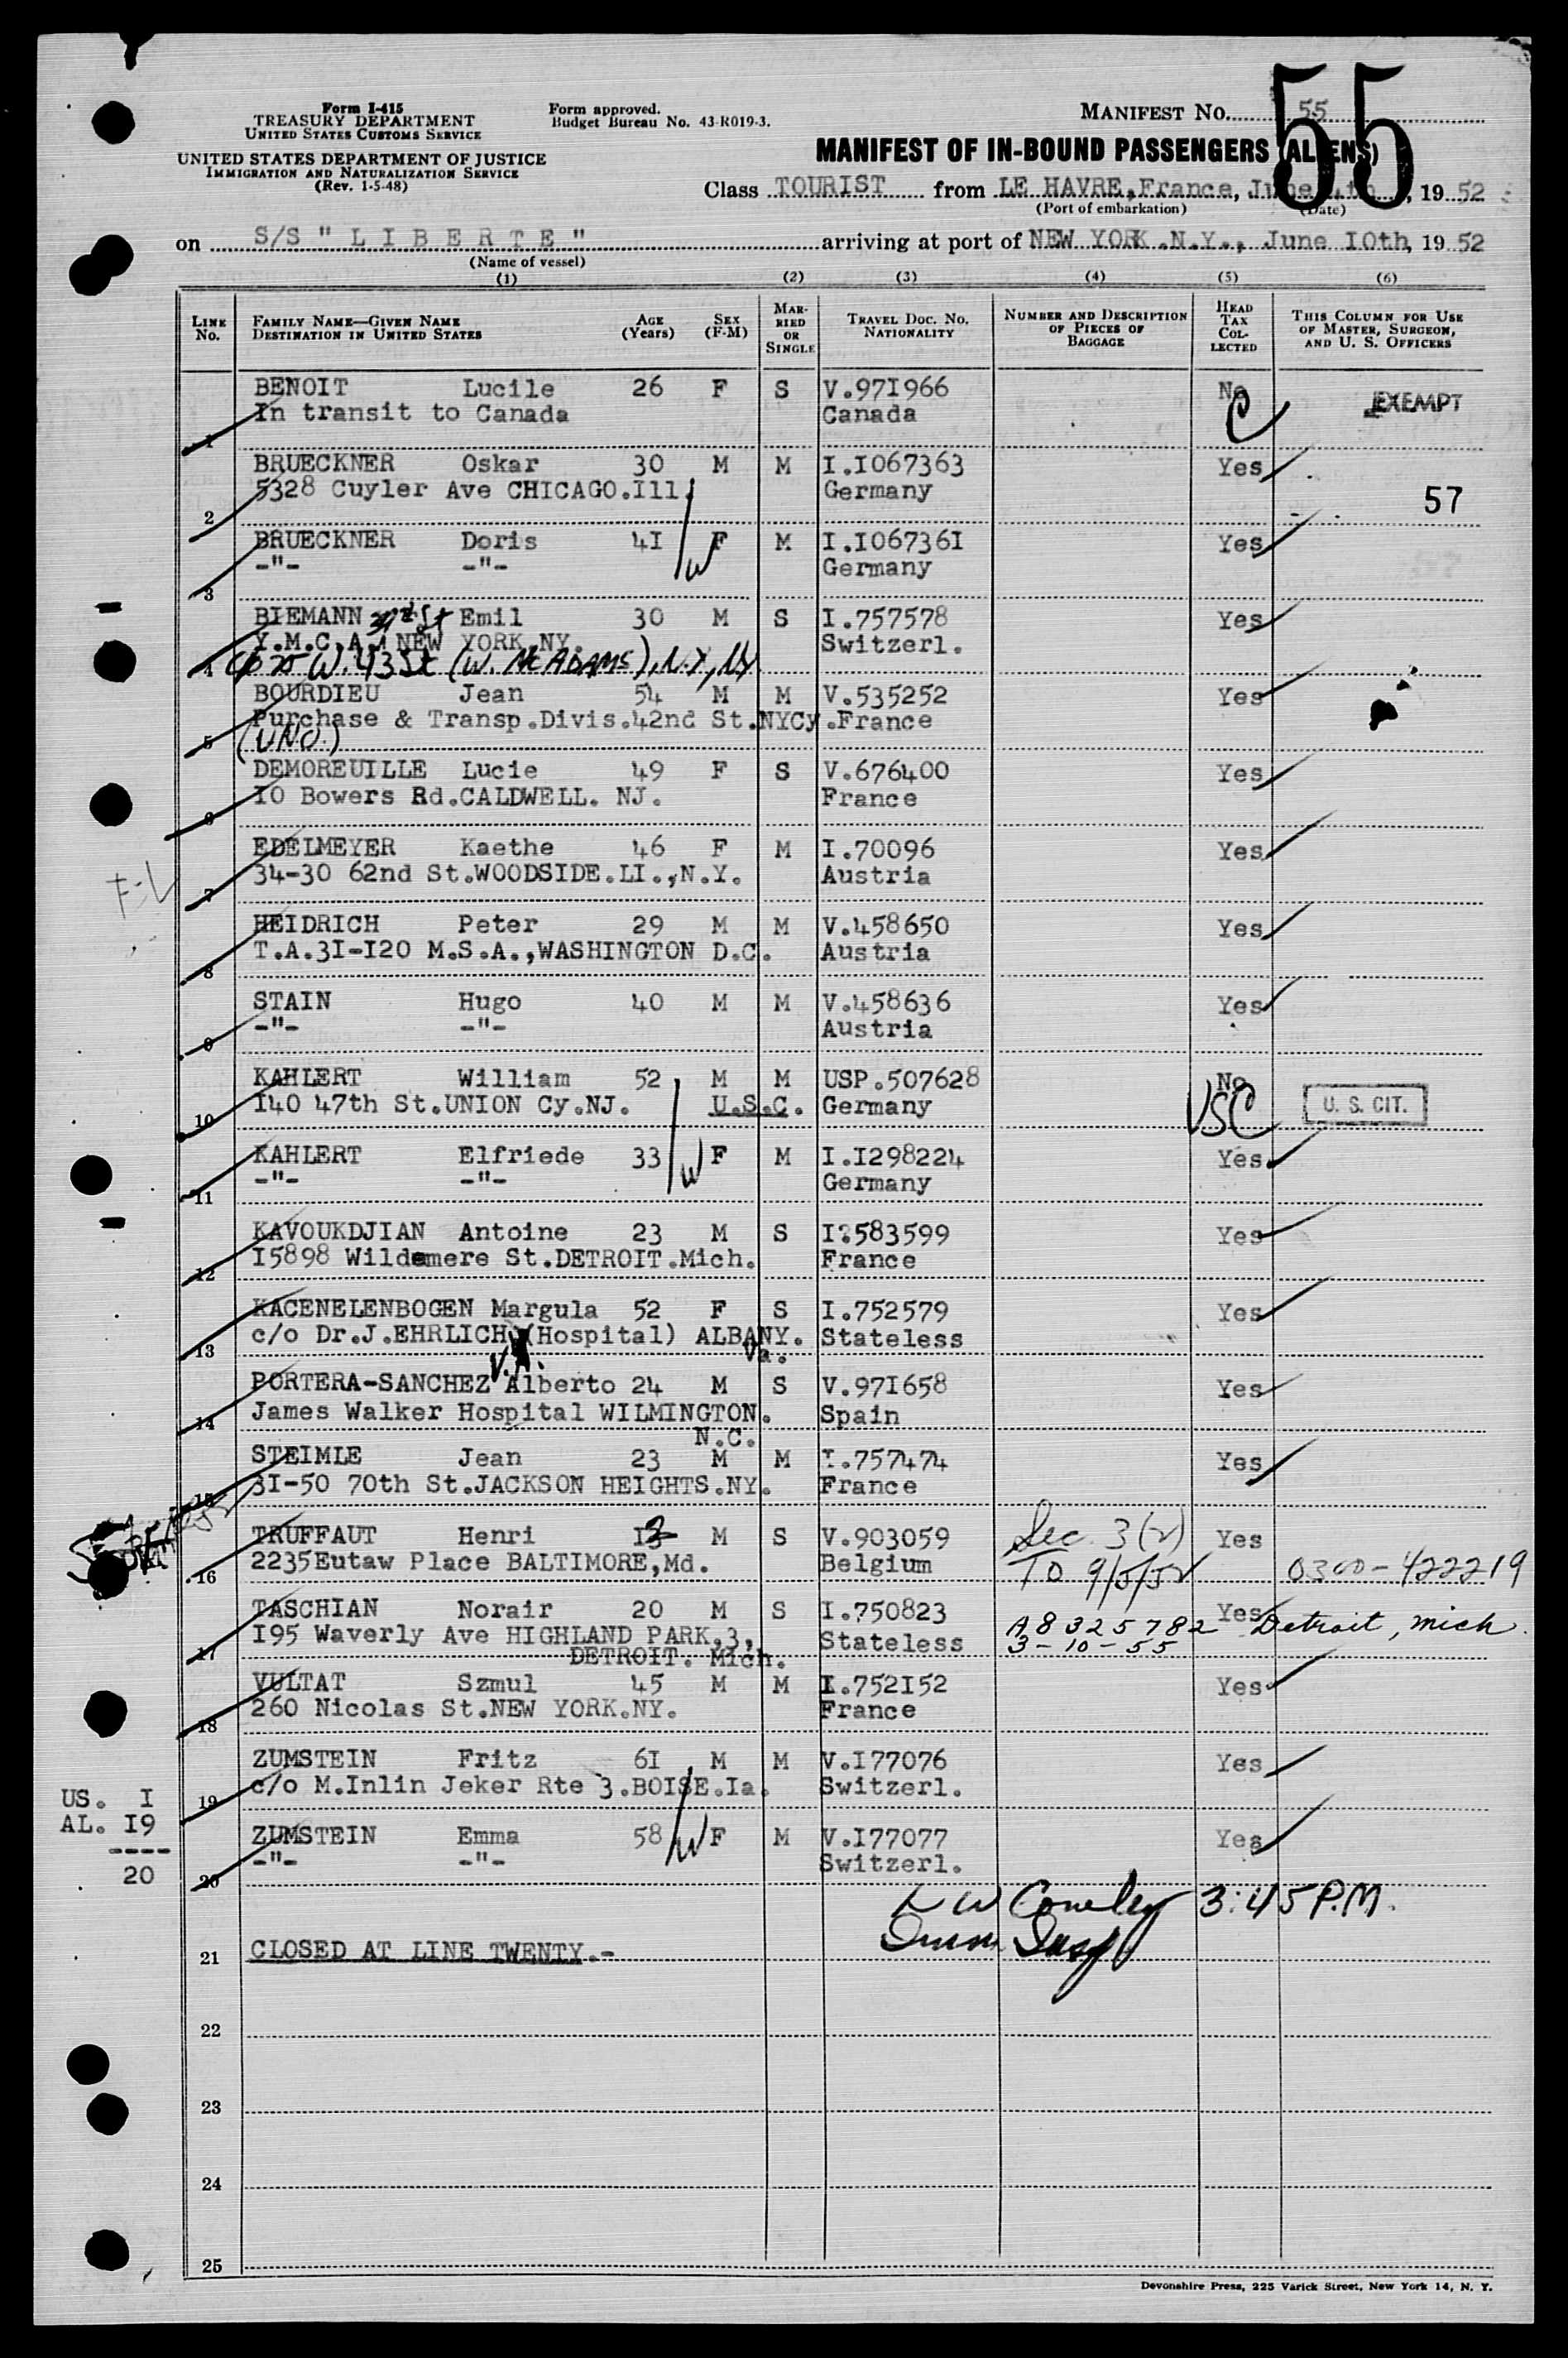 Form I-415
TREASURY DEPARTMENT
UNITED STATES CUSTOMS SERVICE
UNITED STATES DEPARTMENT OF JUSTICE
IMMIGRATION AND NATURALIZATION SERVICE
(Rev. 1-5-48)
Form approved.
Budget Bureau No. 43-R019-3.
MANIFEST No. 55
55
MANIFEST OF IN-BOUND PASSENGERS (ALIENS)
Class TOURIST from LE HAVRE, France, June 4th, 19 52
(Port of embarkation) (Date)
on S/S " L I B E R T E " arriving at port of NEW YORK .N.Y., June 10th, 19 52
(Name of vessel)
(1) (2) (3) (4) (5) (6)
LINE No. FAMILY NAME—GIVEN NAME DESTINATION IN UNITED STATES AGE (Years) SEX (F-M) MARRIED OR SINGLE TRAVEL DOC. NO. NATIONALITY NUMBER AND DESCRIPTION OF PIECES OF BAGGAGE HEAD TAX COLLECTED THIS COLUMN FOR USE OF MASTER, SURGEON, AND U. S. OFFICERS
BENOIT Lucile 26 F S V.971966 No EXEMPT
In transit to Canada Canada
1
BRUECKNER Oskar 30 M M I.1067363 Yes
5328 Cuyler Ave CHICAGO.Ill. Germany 57
2
BRUECKNER Doris 41 W F M I.1067361 Yes
-"- -"- Germany
3
BIEMANN Emil 30 M S I.757578 Yes
34th St
Y.M.C.A. NEW YORK NY. Switzerl.
4 c/o 25 W. 43 St (W. McADAMS), N.Y., NY
BOURDIEU Jean 54 M M V.535252 Yes
Purchase & Transp.Divis.42nd St.NYCy.France
5 (UNO.)
DEMOREUILLE Lucie 49 F S V.676400 Yes
10 Bowers Rd.CALDWELL. NJ. France
6
EDELMEYER Kaethe 46 F M I.70096 Yes
34-30 62nd St.WOODSIDE.LI.,N.Y. Austria
7
HEIDRICH Peter 29 M M V.458650 Yes
T.A.31-120 M.S.A.,WASHINGTON D.C. Austria
8
STAIN Hugo 40 M M V.458636 Yes
-"- -"- Austria
9
KAHLERT William 52 M M USP.507628 No
140 47th St.UNION Cy.NJ. U.S.C. Germany USC U. S. CIT.
10
KAHLERT Elfriede 33 W F M I.1298224 Yes
-"- -"- Germany
11
KAVOUKDJIAN Antoine 23 M S I.583599 Yes
15898 Wildemere St.DETROIT.Mich. France
12
KACENELENBOGEN Margula 52 F S I.752579 Yes
c/o Dr.J.EHRLICH (Hospital) ALBANY. Stateless
13 V.A. Va.
PORTERA-SANCHEZ Alberto 24 M S V.971658 Yes
James Walker Hospital WILMINGTON. Spain
14 N.C.
STEIMLE Jean 23 M M I.757474 Yes
31-50 70th St.JACKSON HEIGHTS.NY. France
15
TRUFFAUT Henri 13 M S V.903059 Sec. 3(2) Yes
2235Eutaw Place BALTIMORE,Md. Belgium TO 9/5/52 0300-422219
16
TASCHIAN Norair 20 M S I.750823 A8325782 Yes Detroit, Mich.
195 Waverly Ave HIGHLAND PARK,3, Stateless 3-10-55
17 DETROIT. Mich.
VULTAT Szmul 45 M M I.752152 Yes
260 Nicolas St.NEW YORK.NY. France
18
ZUMSTEIN Fritz 61 M M V.177076 Yes
c/o M.Inlin Jeker Rte 3.BOISE.Ia. Switzerl.
19
ZUMSTEIN Emma 58 W F M V.177077 Yes
-"- -"- Switzerl.
20
US. 1
AL. 19
----
20
3:45 P.M.
21 CLOSED AT LINE TWENTY.-
22
23
24
25
Devonshire Press, 225 Varick Street, New York 14, N. Y.